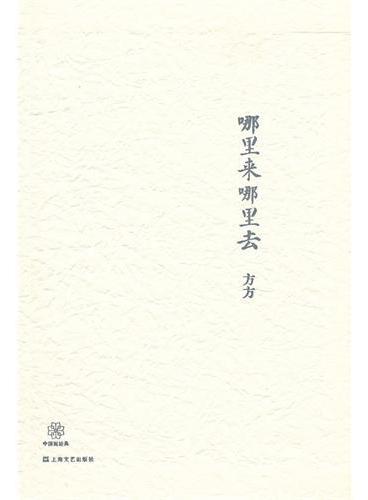 哪里来哪里去
方方
中国新经典
上海文艺出版社